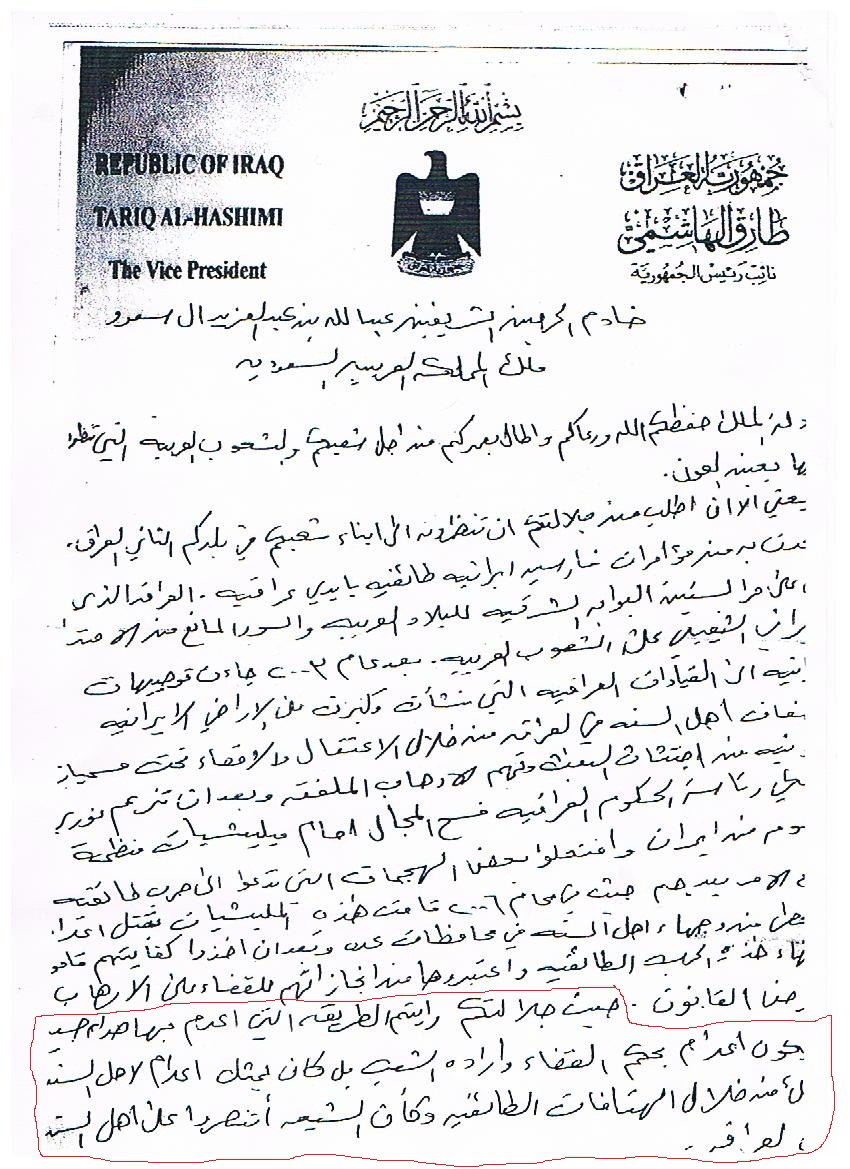 بسم الله الرحمن الرحيم
REPUBLIC OF IRAQ
TARIQ AL-HASHIMI
The Vice President
جمهورية العراق
طارق الهاشمي
نائب رئيس الجمهورية
خادم الحرمين الشريفين عبدالله بن عبدالعزيز ال سعود
ملك المملكة العربية السعودية
الملك حفظكم الله ورعاكم واطال بعمركم من اجل شعبكم والشعوب العربية التي
بعين العون.
الا ان اطلب من جلالتكم ان تنظرون الى ابناء شعبكم في بلدكم الثاني العراق.
به من مؤامرات فارسيه ايرانيه طائفيه بايدي عراقيه. العراق الذي
على مر السنين البوابه الشرقيه للبلاد العربيه والسور المانع من
الشيعي على الشعوب العربيه. بعد عام ٢٠٠٣ جاءت توجيهات
الى القيادات العراقيه التي نشأت وكبرت على الاراضي الايرانيه
اهل السنه في العراق من خلال الاعتقال والاقصاء تحت
من اجتثاث البعث وتهم الارهاب الملفقه وبعد ان تزعم نوري
رئاسة الحكومه العراقيه فسح المجال امام ميليشيات منظمة
من ايران وافتعلوا بعض الهجمات التي تدعوا الى حرب طائفيه
حيث في عام ٢٠٠٦ قامت هذه المليشيات بقتل
من وجهاء اهل السنه في محافظات عده وبعد ان اخذوا كفايتهم
هذه الحرب الطائفيه واعتبروها من انجازاتهم للقضاء على الارهاب
القانون. حيث جلالتكم رايتم الطريقه التي اعدم بها صدام
اعدام بحكم القضاء واراده الشعب بل كان يمثل اعدام لاهل السنه
من خلال الهتافات الطائفيه وكأن الشيعه أنتصروا على اهل